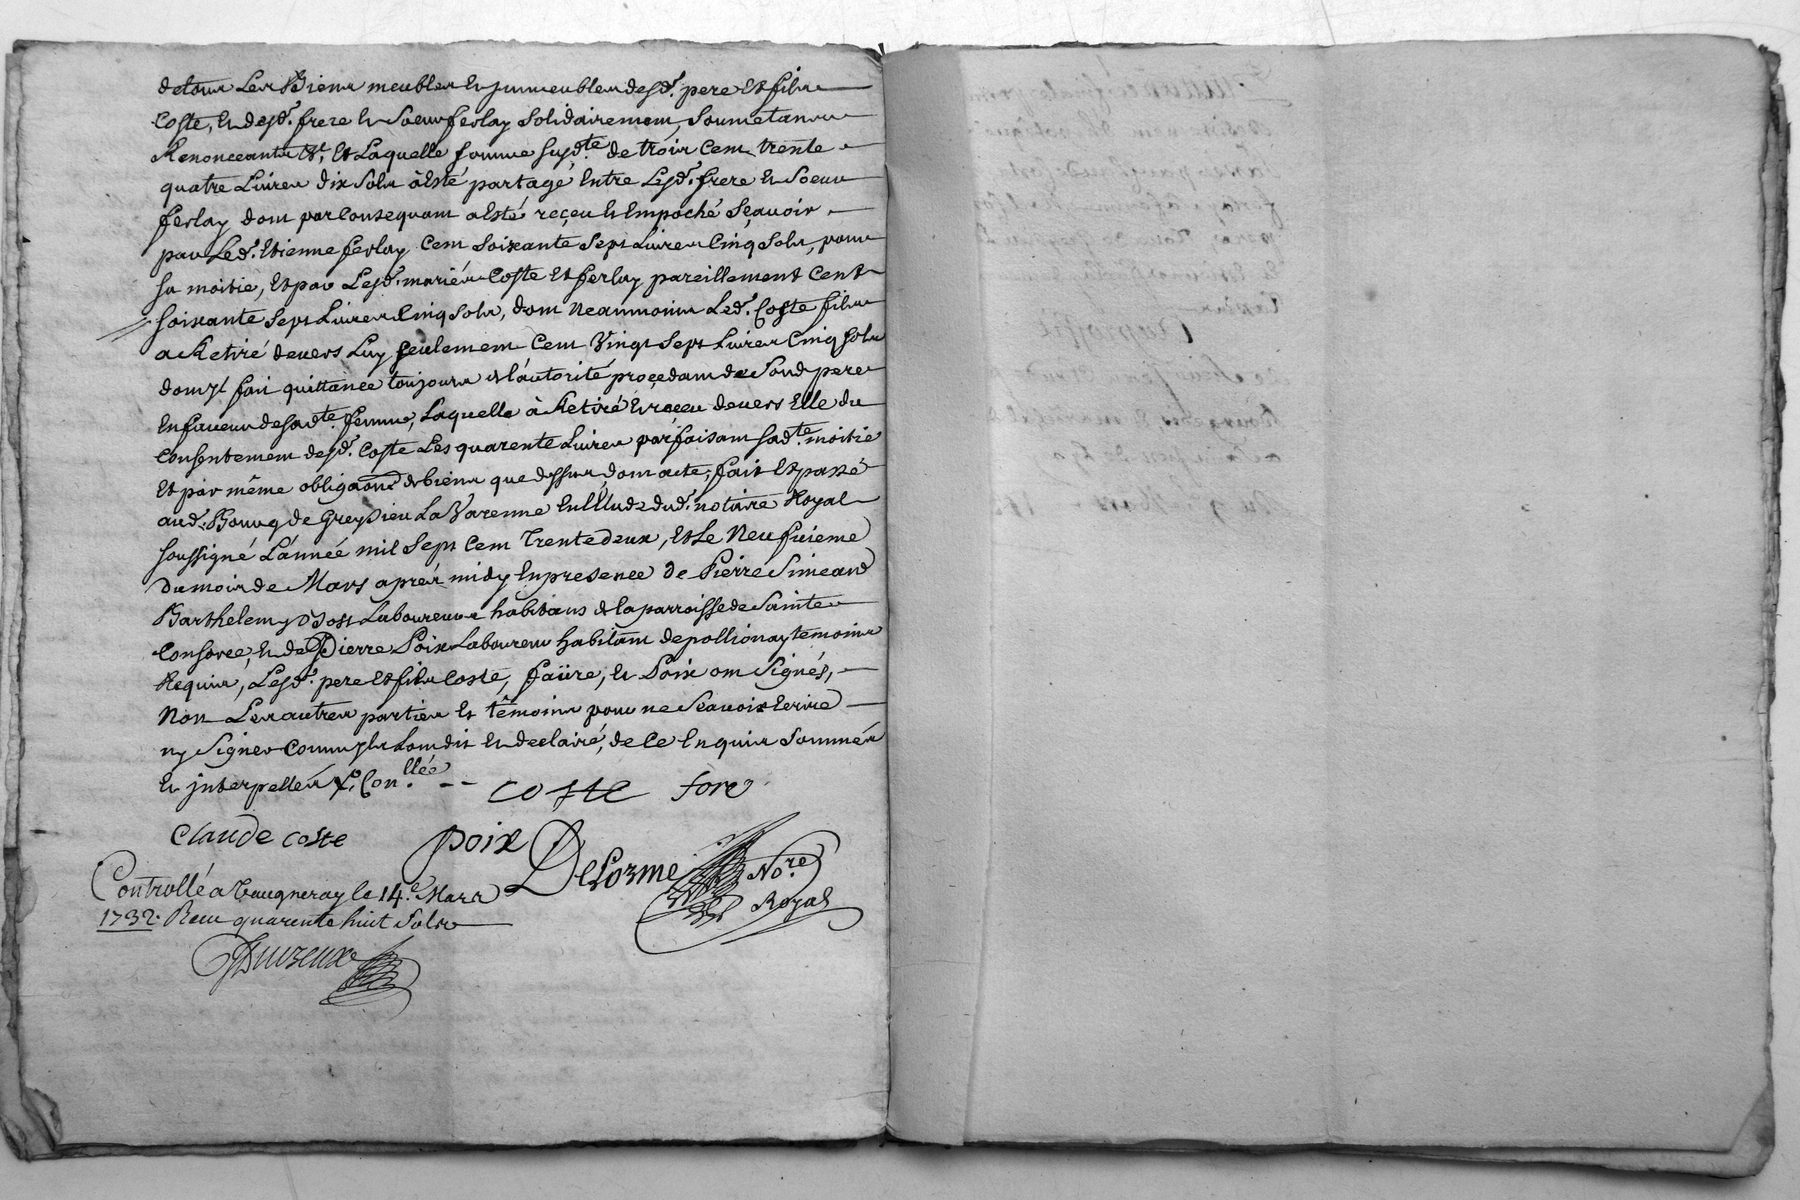 de tous Les Biens meubles et jmmeubles desd. pere et fils
Coste, et desd. frere et Soeur ferlay Solidairement, Soumetans
Renonceants &c, et Laquelle somme susd.te de trois cent trente
quatre Livres dix Sols à esté partagé entre Lesd. frere et Soeur
ferlay dont par Consequant a esté reçeu et empoché sçavoir
par Led. Etienne ferlay Cent Soixante Sept Livres Cinq Sols, pour
sa moitie, et par Lesd. mariés Coste et ferlay pareillement Cent
soixante Sept Livres Cinq Sols, dont neanmoins Led. Coste fils
a Retiré devers Luy seulement Cent Vingt Sept Livres Cinq Sols
dont jl fait quittance toujours de l'autorité procedant de Sond. pere
en faveur de sad.te femme, Laquelle à Retiré et reçeu devers Elle du
Consentement desd. Coste Les quarente Livres parfaisant sad.te moitie
et par même obligaõns de biens que dessus, dont acte, fait et passé
aud. Bourg de Greysieu La Varenne en l'Etude dud. notaire Royal
soussigné L'année mil Sept Cent Trente deux, et Le Neufvieme
Du mois de Mars aprés midy en presence de Pierre Simeand
Barthelemy Laboureurs habitans de la parroisse de Sainte
Consorce, et de Pierre Poix Laboureur habitant de pollionay temoins
Requis, Lesd. pere et fils Coste, faüre, et Poix ont Signés,
Non Les autres parties et têmoins pour ne Sçavoir Ecrire
ny Signer Comm'jls L'ont dit et declairé, de Ce enquis Sommés
et jnterpellés &c. Con.llée --
coste fore
Claude coste poix
DeLorme No.re
Royal
Controllé a Vaugneray le 14.e Mars
1732. Receu quarente huit Sols